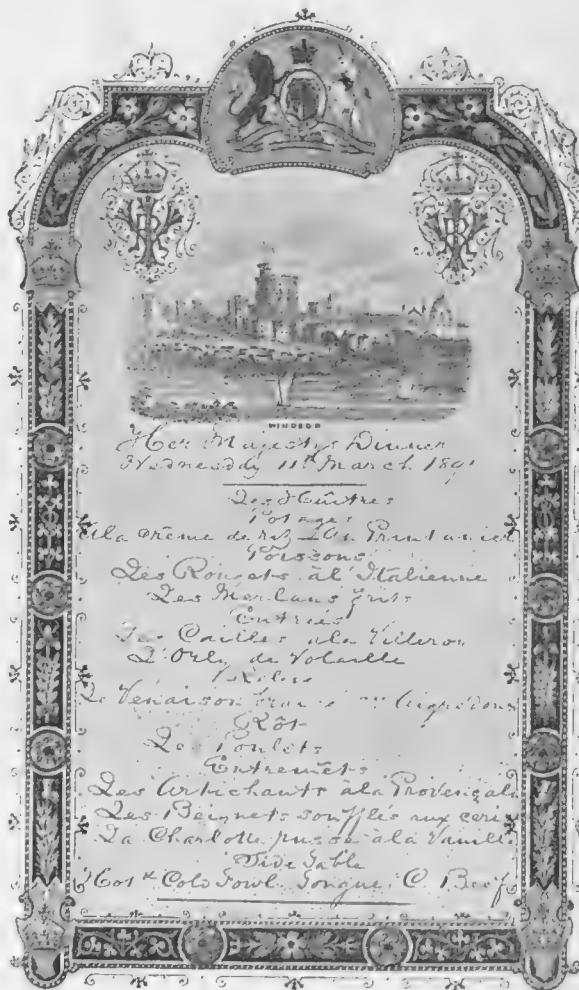 WINDSOR
Her Majesty's Dinner
Wednesday 11th March. 189
Les Huîtres
Potages
A la Crème de riz Au Printanier
Poissons
Les Rougets à l'Italienne
Les Merlans frits
Entrées
Les Cailles à la Villeroy
L'Orly de Volaille
Relevé
Le Venaison
Rôt
Les Poulets
Entremêts
Les Artichauts à la Provençale
Les Beignets soufflés aux
La Charlotte à la Vanille
Side Table
Hot & Cold Fowl. Tongue. C. Beef